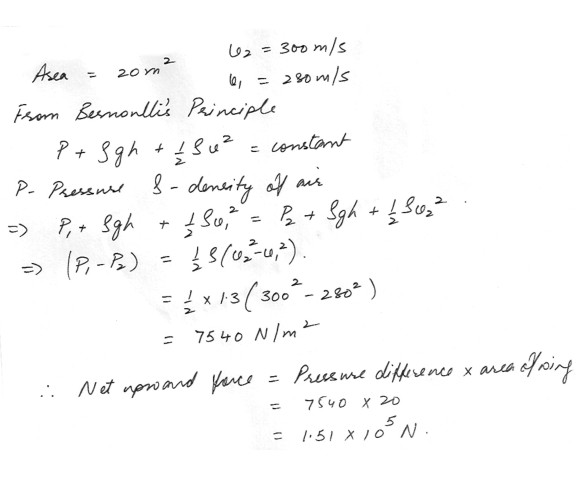 Area = 20m² v₂ = 300 m/s
v₁ = 280 m/s
From Bernoulli's Principle
P + ρgh + ½ρv² = constant
P - Pressure ρ - density of air
⇒ P₁ + ρgh + ½ρv₁² = P₂ + ρgh + ½ρv₂².
⇒ (P₁ - P₂) = ½ρ(v₂² - v₁²).
= ½ × 1.3 (300² - 280²)
= 7540 N/m²
∴ Net upward force = Pressure difference × area of wing
= 7540 × 20
= 1.51 × 10⁵ N.